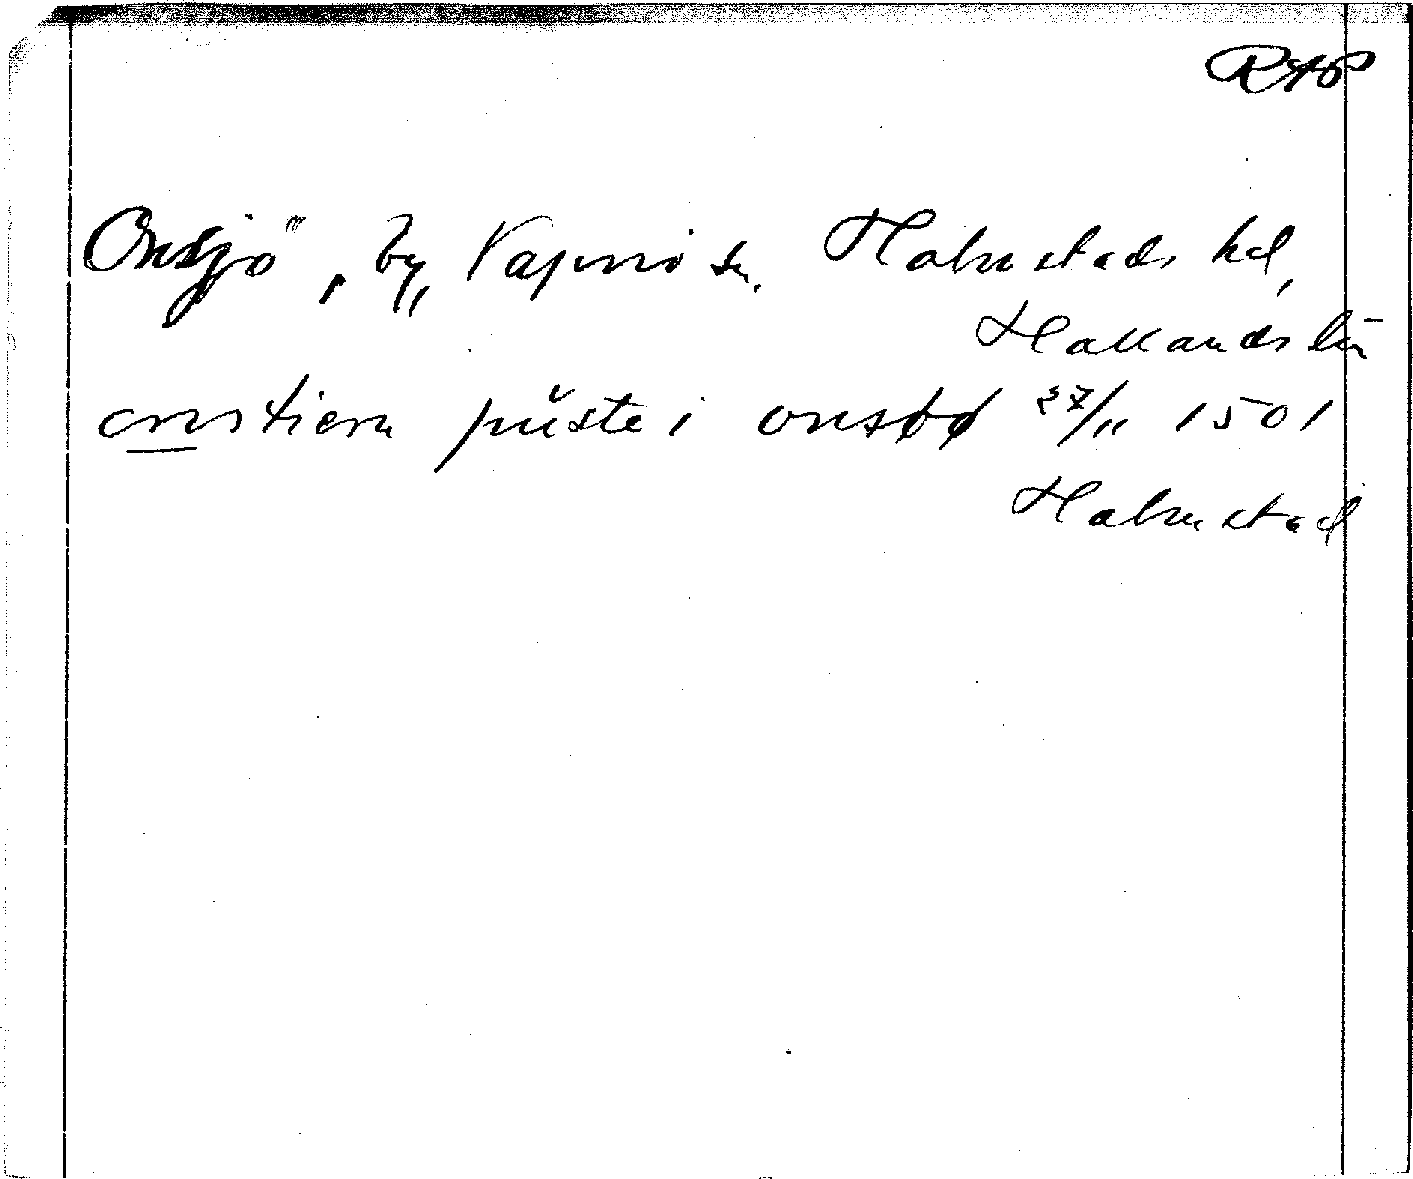 RAP
Onsjö, by, Vapnö sn. Halmstads hd,
Hallands län
cristiern püste i onsød 27/11 1501
Halmstad